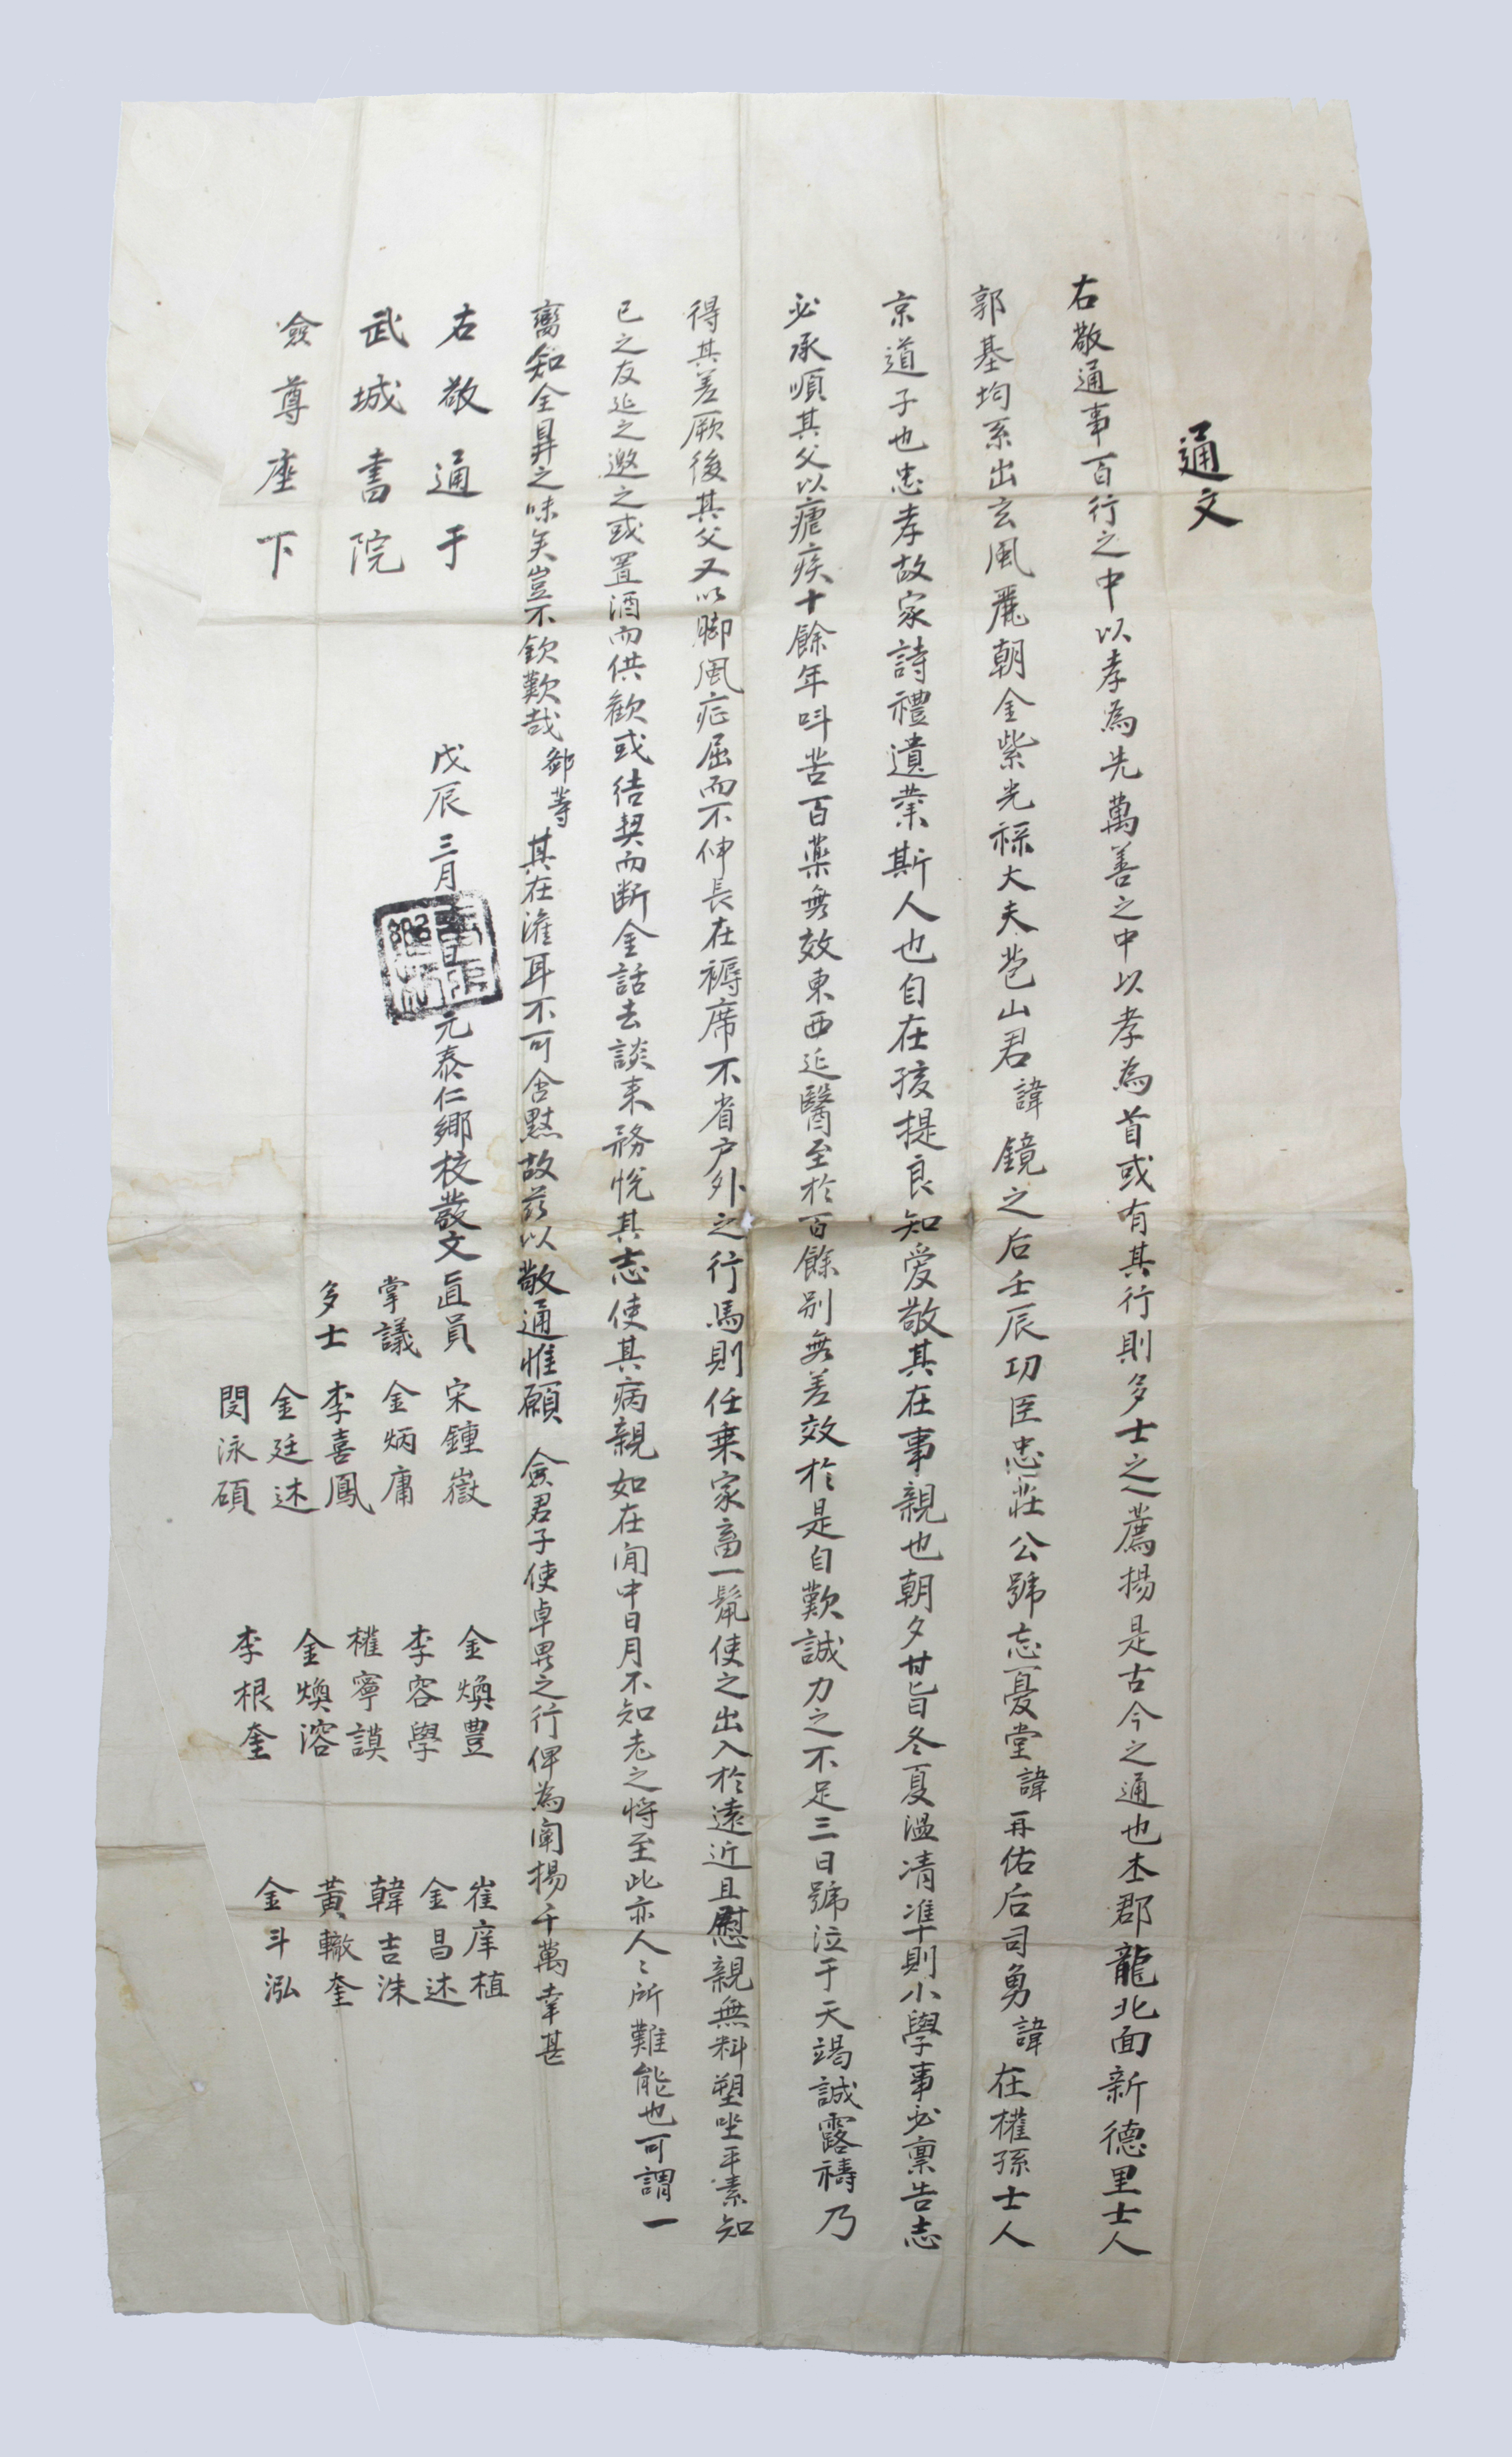 通文
右敬通事百行之中以孝為先萬善之中以孝為首或有其行則多士之薦揚是古今之通也本郡龍北面新德里士人
郭基坸系出玄風麗朝金紫光祿大夫苞山君諱鏡之后壬辰功臣忠莊公號忘憂堂諱再佑后司勇諱在權孫士人
京道子也忠孝故家詩禮遺業斯人也自在孩提良知愛敬其在事親也朝夕甘旨冬夏溫凊準則小學事必稟告志
必承順其父以瘧疾十餘年呌苦百藥無效東西延醫至於百餘別無差效於是自歎誠力之不足三日號泣于天竭誠露禱乃
得其差厥後其父又以脚風症屈而不伸長在褥席不省户外之行馬則任乗家畜一鬣使之出入於遠近且慰親無料塑坐平素知
已之友延之邀之或置酒而供歡或結契而断金話去談来務悅其志使其病親如在閒中日月不知老之將至此亦人〻所難能也可謂一
臠知全鼎之味矣豈不欽歎哉鄙等其在灌耳不可含默故茲以敬通惟願 僉君子使卓異之行俾為闡揚千萬幸甚
右敬通于
武城書院
僉尊座下
戊辰三月 日元泰仁鄉校發文直員 宋鍾嶽 金煥豊 崔庠植
掌議 金炳庸 李容學 金昌述
多士 李喜鳳 權寧謨 韓吉洙
金廷述 金煥溶 黃轍奎
閔泳碩 李根奎 金斗泓